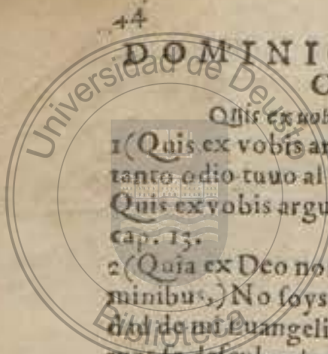 44
DOMINI
C
Quis ex uob
1(Quis ex vobis ar
tanto odio tuuo al
Quis ex vobis argu
cap. 13.
2(Quia ex Deo no
minibus,) No soys
dad de mi Euangeli
Universidad de Deusto
Biblioteca